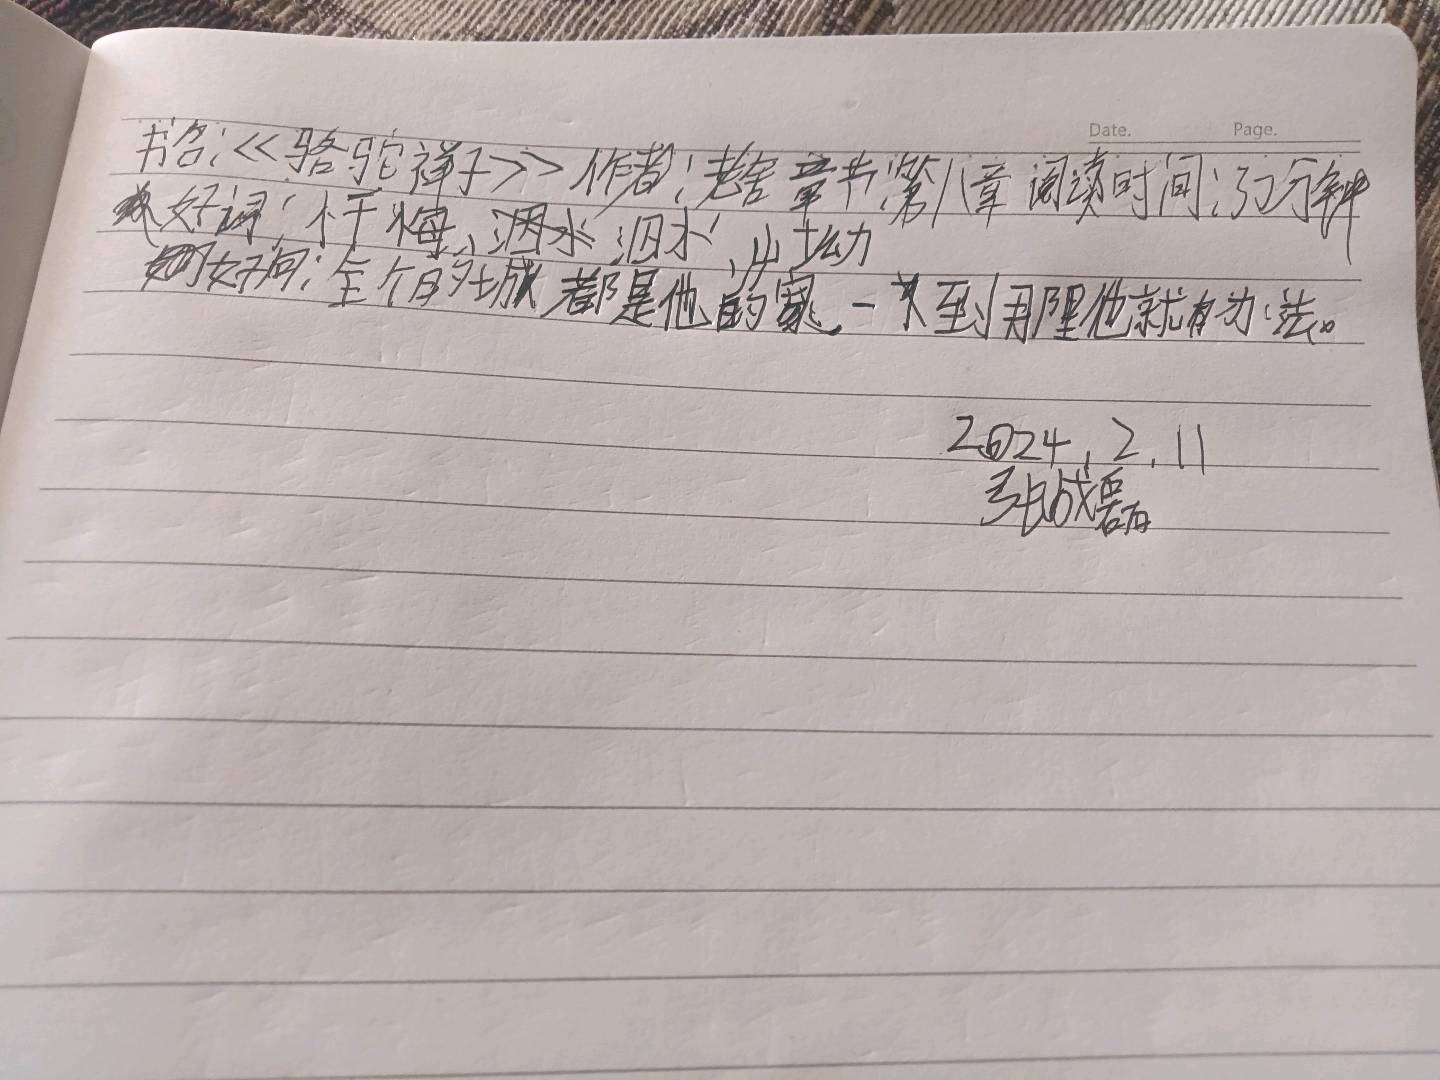 Date. Page.
书名:<<骆驼祥子>>作者:老舍 章节:第八章 阅读时间:30分钟
好词:忏悔、泪水、山坳
好句:全个的城都是他的家,一到那里他就有办法。
2024.2.11
张成磊